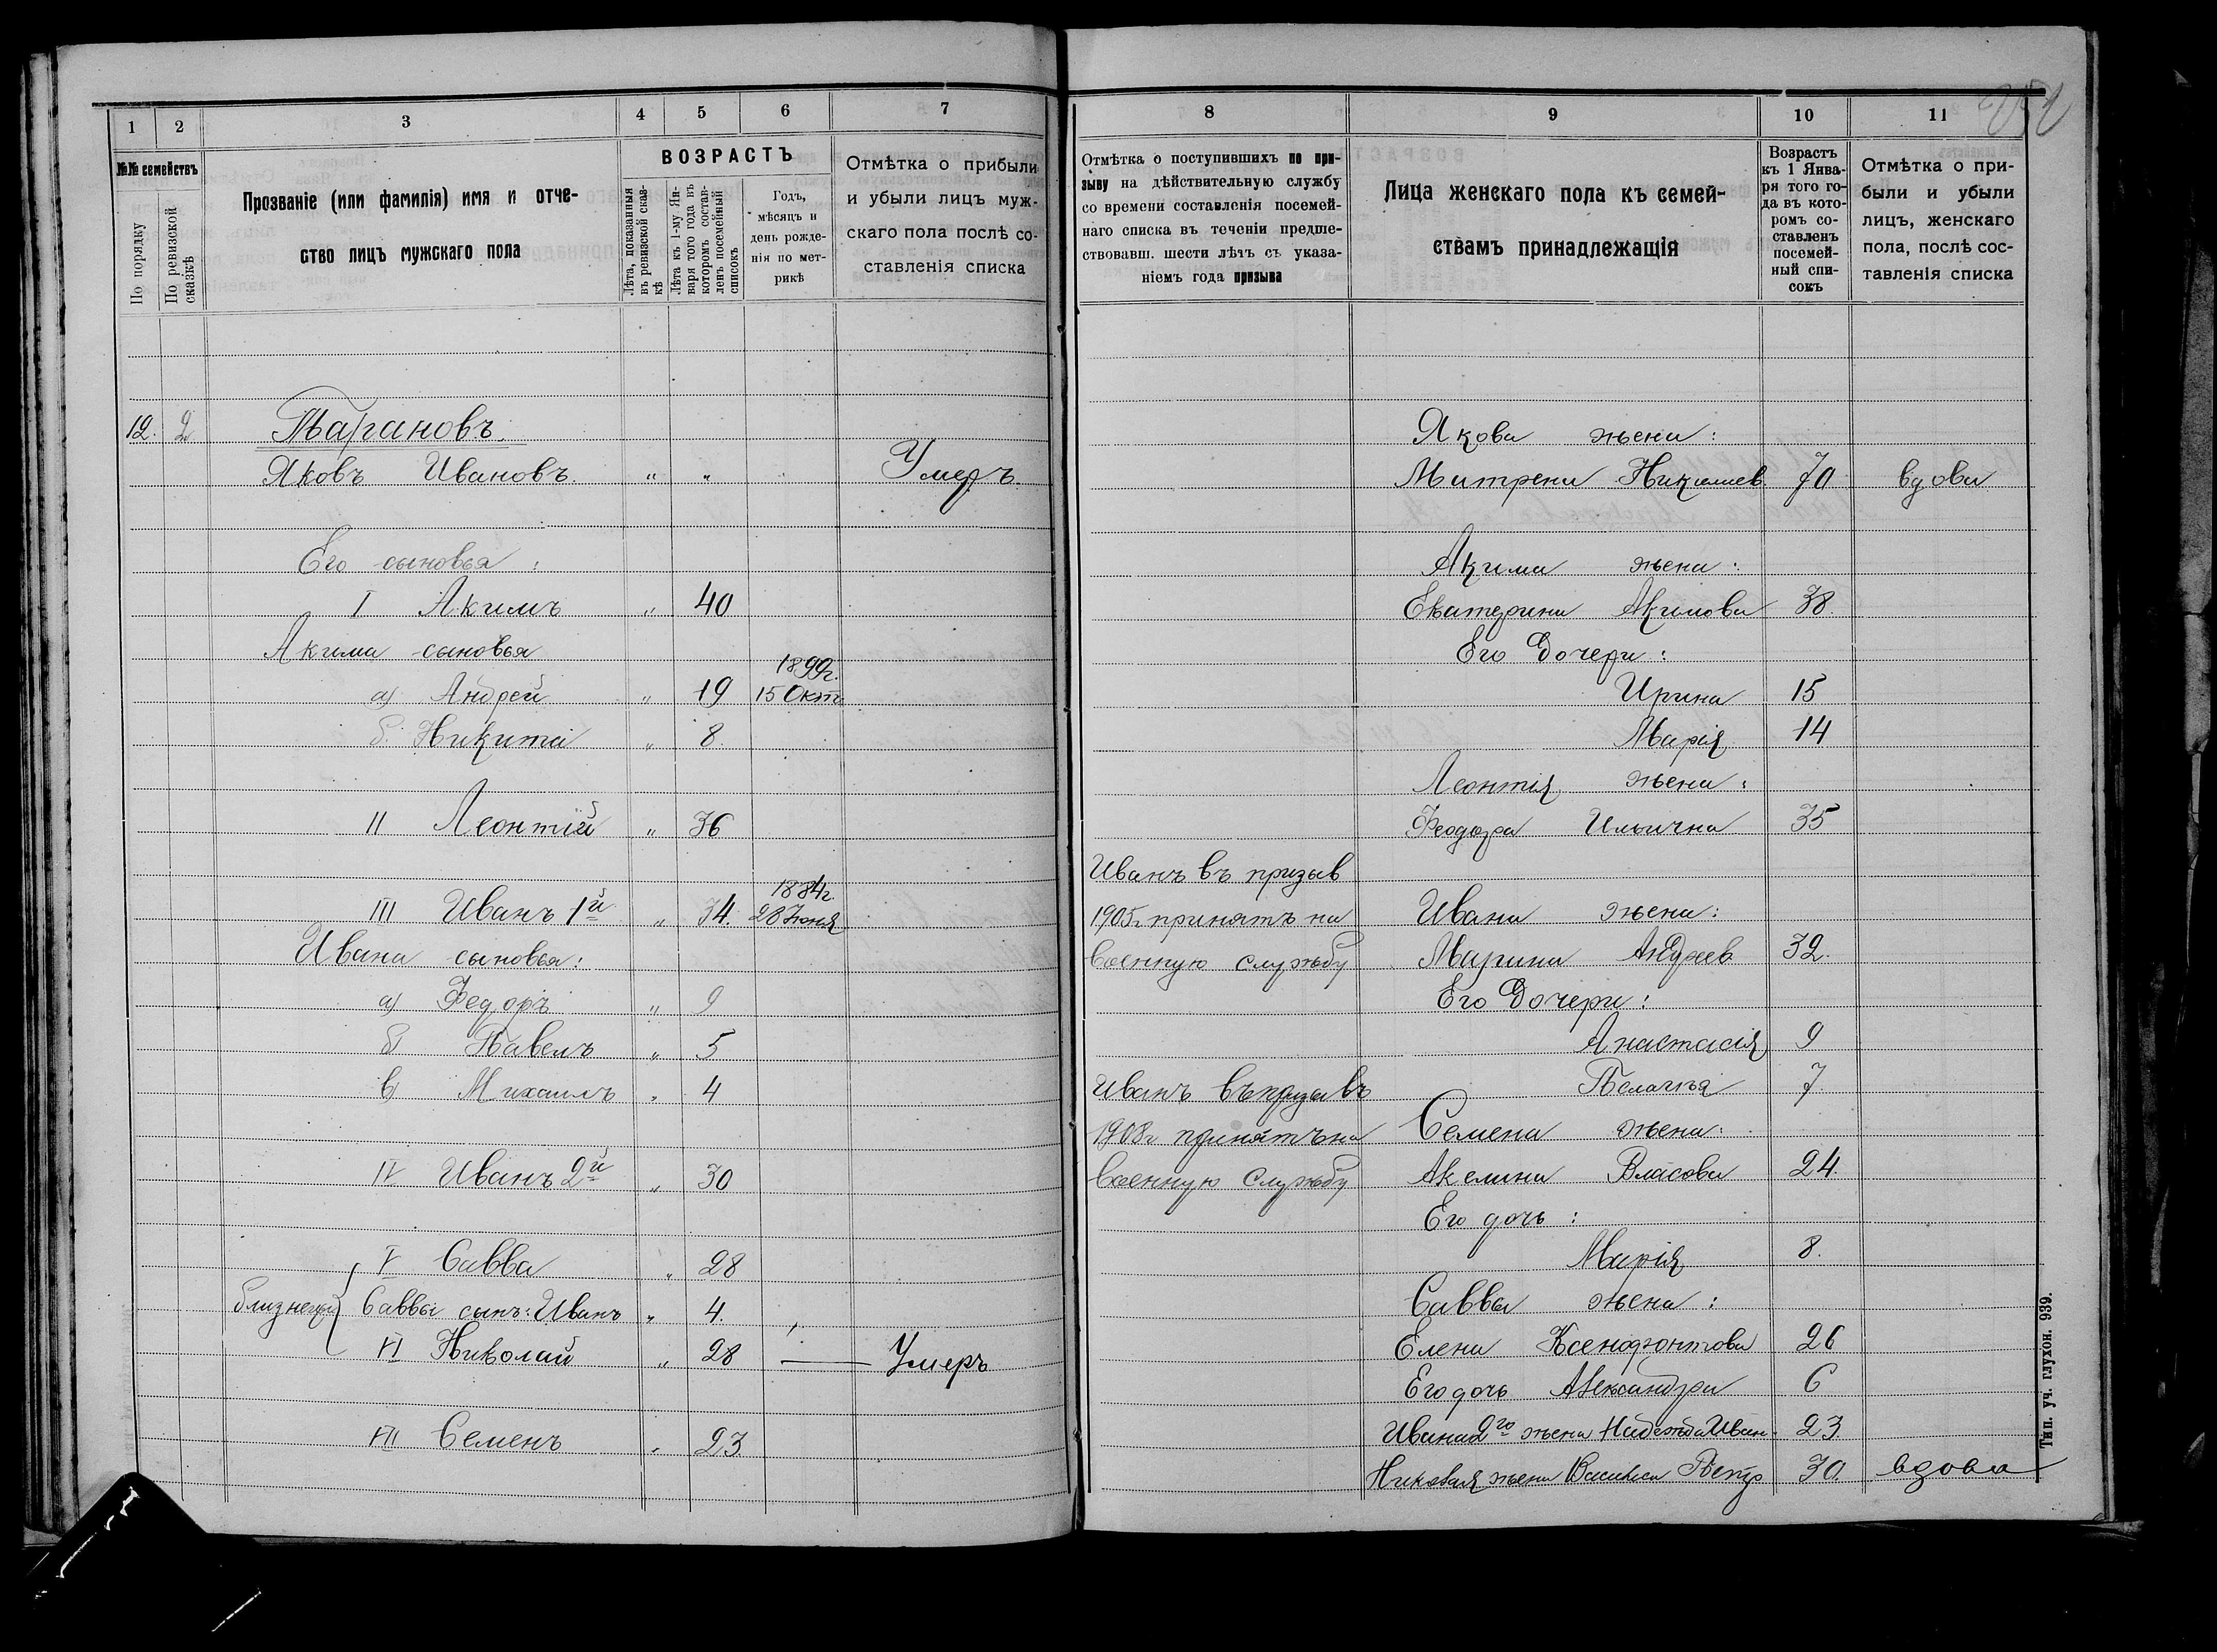 1 2 3 4 5 6 7
№№ семействъ
По порядку
По ревизской сказкѣ
Прозваніе (или фамилія) имя и отче-
ство лицъ мужскаго пола
ВОЗРАСТЪ
Лѣта, показанныя въ ревизской сказ-кѣ
Лѣта къ 1-му Ян-варя того года въ котором состав-ленъ посемейный списокъ
Годъ,
мѣсяцъ и
день рожде-
нія по мет-
рикѣ
Отмѣтка о прибыли
и убыли лицъ муж-
скаго пола послѣ со-
ставленія списка
12. 2
Яковъ Ивановъ. " " Умеръ
Его сыновья:
I Акимъ " 40
Акима сыновья
1899г.
а) Андрей " 19 15 Окт.
б. Никита " 8.
II Леонтій " 36
1884г.
III Иванъ 1й " 34. 28 Іюня
Ивана сыновья:
а) Федоръ " 9
б) Павелъ " 5
в) Михаилъ " 4
IV Иванъ 2й " 30
V Савва " 28
близнецы Саввы сынъ: Иванъ " 4.
VI Николай " 28 — Умеръ
VII Семенъ " 23
8 9 10 11
Отмѣтка о поступившихъ по при-
зыву на дѣйствительную службу
со времени составленія посемей-
наго списка въ теченіи предше-
ствовавш. шести лѣтъ съ указа-
ніемъ года призыва
Лица женскаго пола къ семей-
ствамъ принадлежащія
Возрастъ
къ 1 Янва-
ря того го-
да въ кото-
ромъ со-
ставленъ
посемей-
ный спи-
сокъ
Отмѣтка о при-
были и убыли
лицъ, женскаго
пола, послѣ сос-
тавленія списка
Якова жена:
Матрена Николаев. 70 вдова
Акима жена:
Екатерина Акимова 38.
Его Дочери:
Ирина 15
Марія 14
Леонтія жена:
Феодора Ильична 35
Иванъ въ призыв
1905г принятъ на Ивана жена:
военную службу Марина Андреев 32.
Его Дочери:
Анастасія 9
Иванъ въ призывъ Пелагея 7.
1908г принятъ на Семена жена:
военную службу Акелина Власова 24.
Его дочь:
Марія 8.
Саввы жена:
Елена Ксенофонтова 26
Его дочь Александра 6
Ивана 2го жена Надежда Иван. 23
Николая жена Василиса Петр 30. вдова
Тип. уч. глухон. 939.